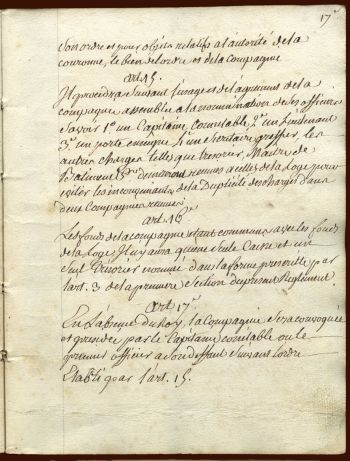 17
Son ordre et pour objets relatifs a l'autorité de la
couronne, le bien de l'ordre et de la Compagnie
art 15.
Il procedera suivant l'usage et les reglemens de la
compagnie assemblée a la nomination de ses officiers
Savoir 1º un Capitaine connetable, 2º un Lieutenant
3º un porte enseigne 4º un Secretaire greffier, les
autres charges telles que tresorier, Maitre de
demeurant reunies a celles de la Loge pour
eviter les inconvenients de la Duplicité des charges dans
deux Compagnies reunies
art. 16
Les fonds de la compagnie etant communs avec les fonds
de la Loge Il n'y aura qu'une seule Caisse et un
Seul Trésorier nommé dans la forme prescritte par
l'art. 3 de la premiere Section du present Reglement
art 17
En l'absence du Roy, la Compagnie sera convoquée
et presidée par le Capitaine connétable ou le
premier officier a son deffaut suivant l'ordre
Etabli par l'art. 15.